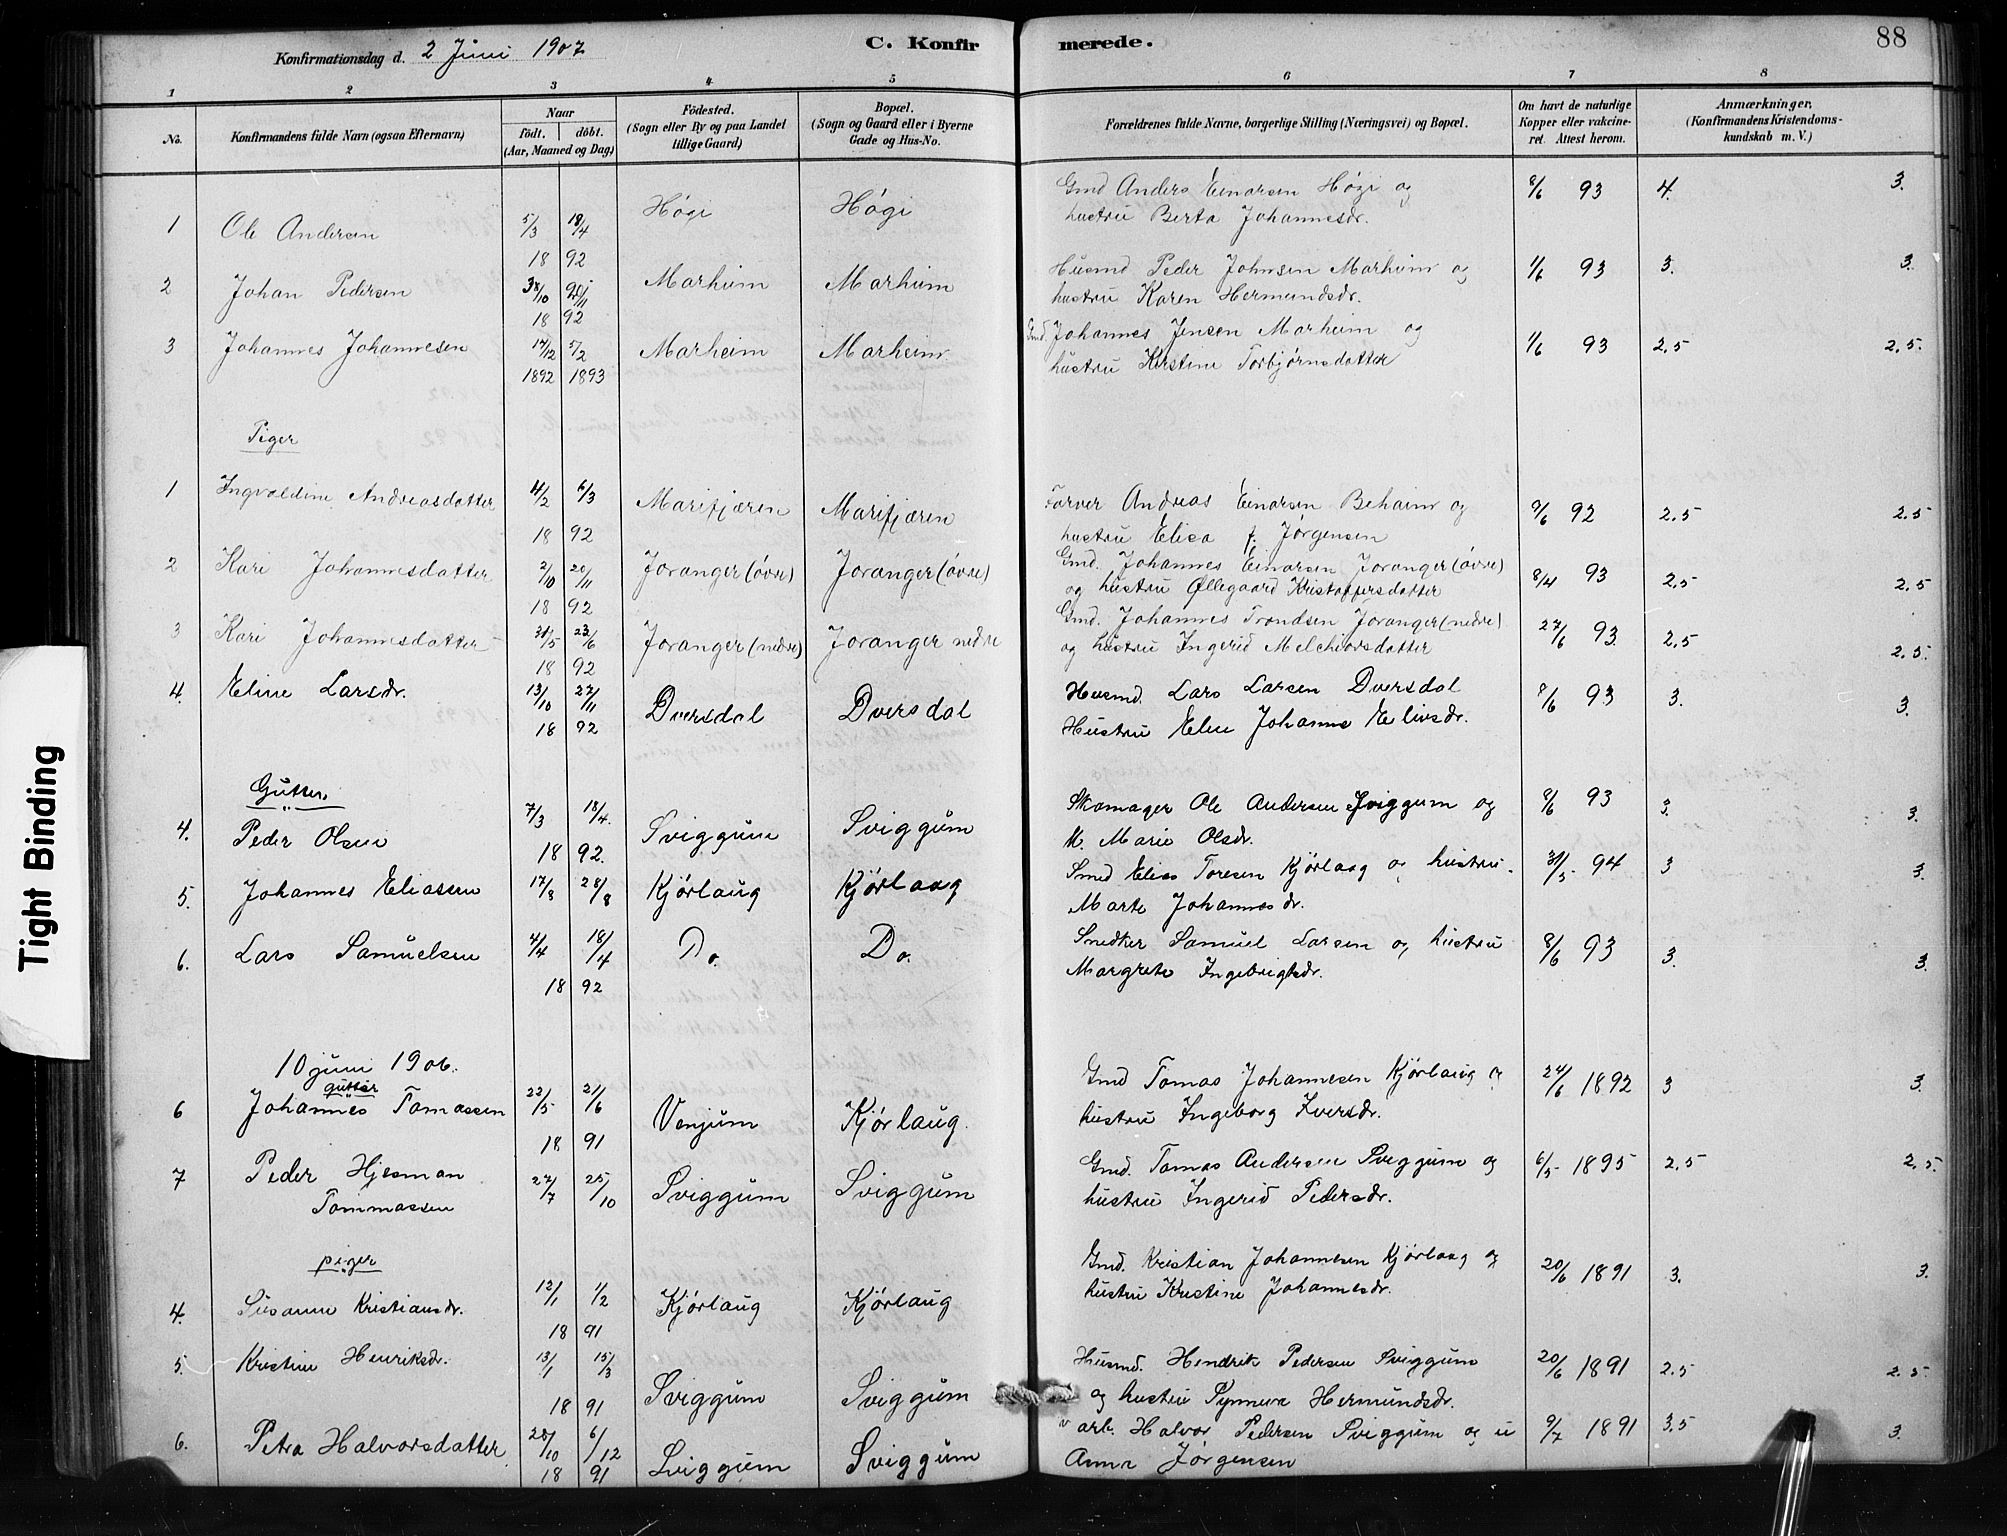 Konfirmationsdag d. 2 Juni 1907 C. Konfirmerede. 88
1 2 3 4 5 6 7 8
No. Konfirmandens fulde Navn (ogsaa Efternavn) Naar født. døbt. (Aar, Maaned og Dag) Fødested. (Sogn eller By og paa Landet tillige Gaard) Bopæl. (Sogn og Gaard eller i Byerne Gade og Hus-No. Forældrenes fulde Navne, borgerlige Stilling (Næringsvei) og Bopæl. Om havt de naturlige Kopper eller vakcineret. Attest herom. Anmærkninger, (Konfirmandens Kristendomskundskab m. V.)
1 Ole Andersen 5/3 18/4 Høgi Høgi Gmd Anders Einarsen Høgi og 8/6 93 4. 3.
18 92 hustru Berta Johannesdr.
2 Johan Pedersen Marheim Marheim Husmd Peder Johnsen Marheim og 1/6 93 3. 3.
18 92 hustru Karen Hermundsdr.
3 Johannes Johannesen 17/12 5/2 Marheim Marheim Gmd. Johannes Jensen Marheim og 1/6 93 2,5 2,5.
1892 1893 hustru Kirstine Torbjørnsdatter
Piger
1 Ingvaldine Andreasdatter 4/2 6/3 Marifjæren Marifjæren Farver Andreas Einarsen Beheim og 9/6 92 2.5 2.5
18 92 hustru Elisa f. Jørgensen
2 Kari Johannesdatter 2/10 20/11 Joranger (øvre) Joranger (øvre) Gmd. Johannes Einarsen Joranger (øvre) 8/4 93 2.5 2.5
18 92 og hustru Øllegaard Kristoffersdatter
3 Kari Johannesdatter 31/5 23/6 Joranger (nedre) Joranger nedre Gmd. Johannes Trondsen Joranger (nedre) 27/6 93. 2,5 2.5.
18 92 og hustru Ingerid Melchiorsdatter
4. Eline Larsdr. 13/10 27/11 Dversdal Dversdal Husmd. Lars Larsen Dversdal 8/6 93 3. 3.
18 92 Hustru Elen Johanne Elivsdr.
Gutter.
4. Peder Olsen 7/3 18/4. Sviggum Sviggum Skomager Ole Andersen Sviggum og 8/6 93 3. 3.
18 92. M. Marie Olsdr.
5. Johannes Eliassen 17/8 28/8 Kjørlaug Kjørlaug Smed Elias Toresen Kjørlaug og hustru 31/5 94 3 3.
Marte Johannesdr.
6. Lars Samuelsen 4/4 18/4 Do. Do. Snedker Samuel Larsen og hustru 8/6 93 3. 3.
18 92 Margrete Ingebrigtsdr.
10 juni 1906.
gutter
6 Johannes Tomassen 22/5 21/6 Venjum Kjørlaug. Gmd Tomas Johannesen Kjørlaug og 24/6 1892 3 3.
18 91 hustru Ingeborg Iversdr.
7 Peder Hjelman 27/7 25/10 Sviggum Sviggum Gmd. Tomas Andersen Sviggum og 6/5 1895 2,5 2,5.
Tommassen hustru Ingerid Pedersdr.
piger
4. Susanne Kristiansdr. 12/1 1/2 Kjørlaug Kjørlaug Gmd. Kristian Johannesen Kjørlaug og 20/6 1891 3. 3.
18 91 hustru Kristine Johannesdr.
5. Kristine Henriksdr. 13/1 15/3 Sviggum Sviggum Husmd. Hendrik Pedersen Sviggum 20/6 1891 2.5 2.5
18 91 og hustru Synneva Hermundsdr.
6. Petra Halvorsdatter 28/10 6/12 Sviggum Sviggum arb. Halvor Pedersen Sviggum og 9/7 1891 3.5 3.
18 91 Anna Jørgensen
Tight Binding